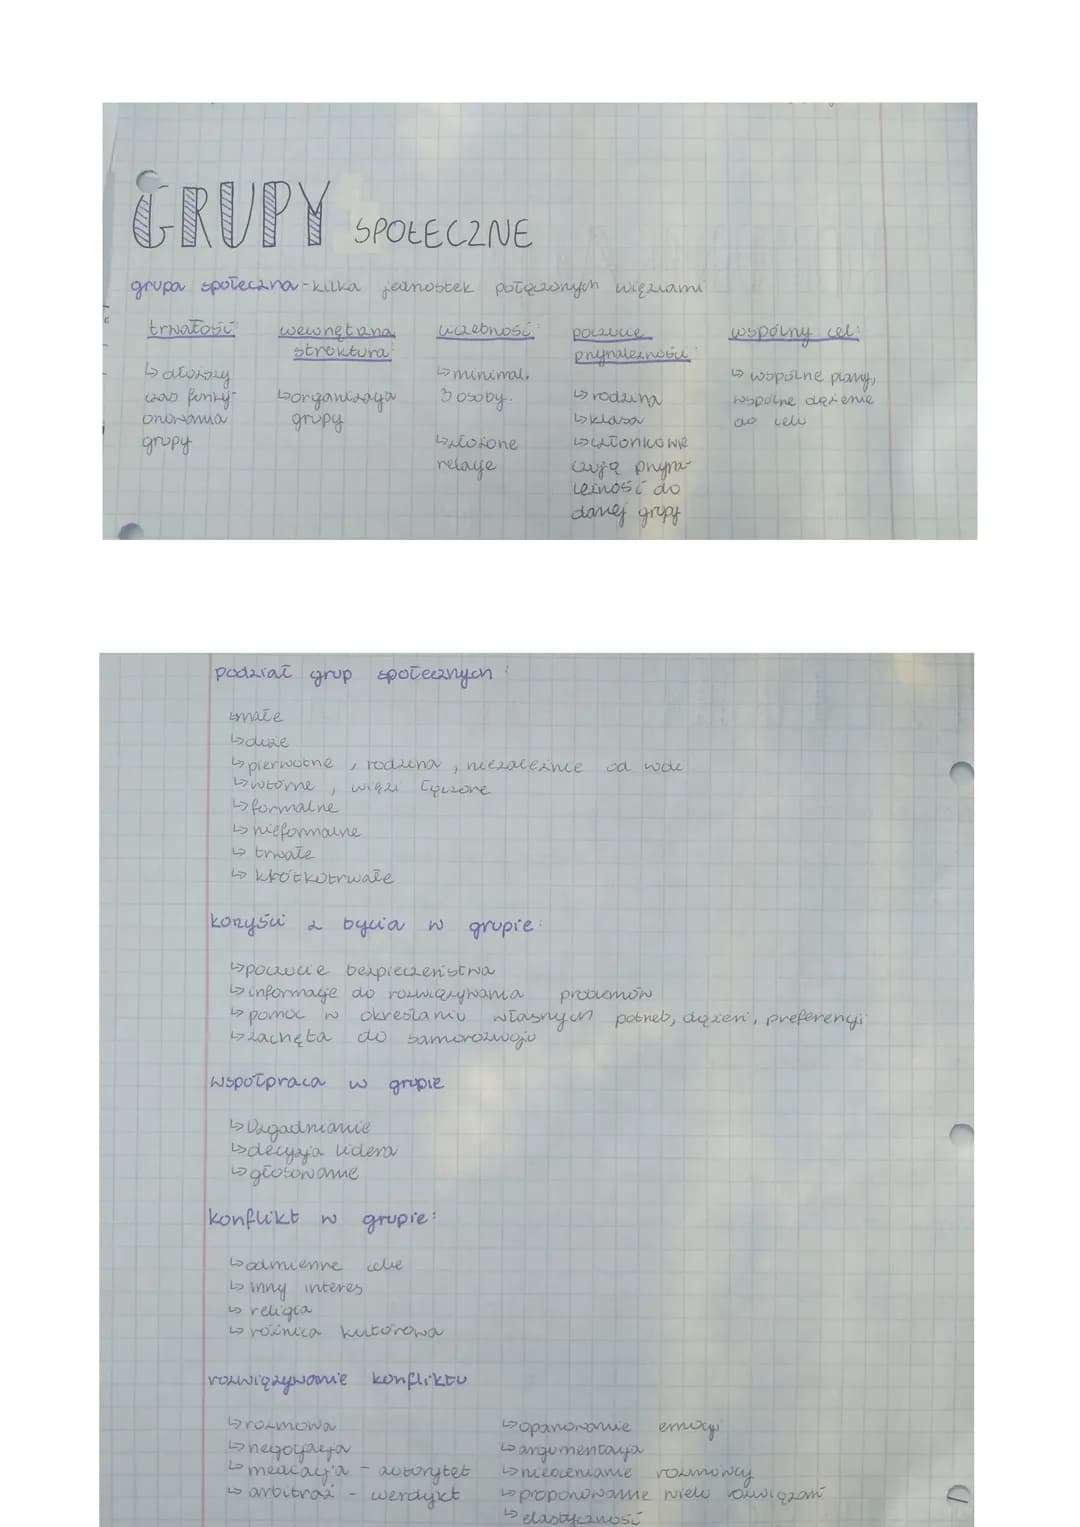 GRUPY SPOŁECZNE
grupa społeczna - kilka jednostek połączonych więziami
trwałość:
↳ dłuższy
czas funkcj-
onowania
grupy
wewnętrzna
struktura:
↳ organizacja
grupy
liczebność:
↳ minimal.
3 osoby.
↳ złożone
relacje
poczucie
przynależności:
↳ rodzina
↳ klasa
↳ członkowie
czują przyna-
leżność do
danej grupy
wspólny cel:
↳ wspólne plany,
wspólne dążenie
do celu
podział grup społecznych:
↳ małe
↳ duże
↳ pierwotne, rodzina, niezależnie od woli
↳ wtórne, więzi łączone
↳ formalne
↳ nieformalne
↳ trwałe
↳ krótkotrwałe
korzyści z bycia w grupie:
↳ poczucie bezpieczeństwa
↳ informacje do rozwiązywania problemów
↳ pomoc w określaniu własnych potrzeb, dążeń, preferencji
↳ zachęta do samorozwoju
współpraca w grupie
↳ Uzgadnianie
↳ decyzja lidera
↳ głosowanie
konflikt w grupie:
↳ odmienne cele
↳ inny interes
↳ religia
↳ różnica kuturowa
rozwiązywanie konfliktu
↳ rozmowa
↳ negocjacja
↳ mediacja - autorytet
↳ arbitraż - werdykt
↳ opanowanie emocji
↳ argumentacja
↳ nieocenianie rozmówcy
↳ proponowanie wielu rozwiązań
↳ elastyczność